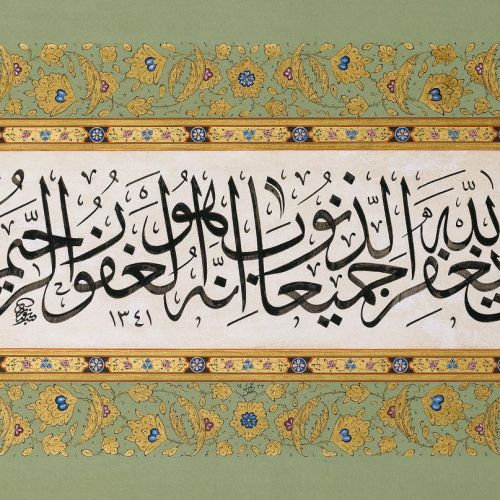 الله يغفر الذنوب جميعا انه هو الغفور الرحيم
١٣٤١